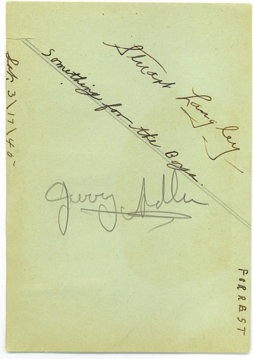 Stuart Langley
Something for the Boys.
Sat 3/17/45
Jerry Adler
FORREST